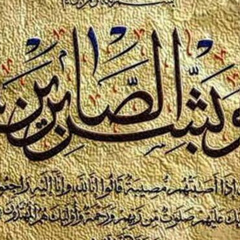 وبشر الصابرين
إذا أصابتهم مصيبة قالوا إنا لله وإنا إليه راجعون
عليهم صلوات من ربهم ورحمة وأولئك هم المهتدون